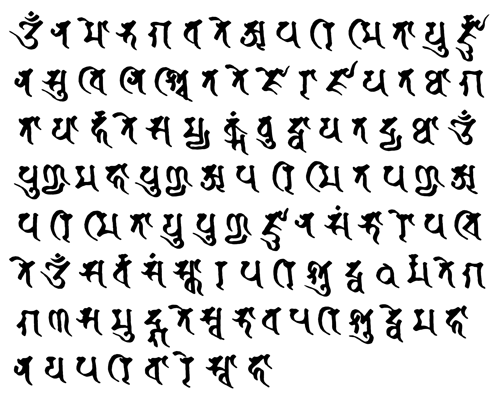 𑖌𑖼 𑖡 𑖦𑖺 𑖥 𑖐 𑖪 𑖝𑖸 𑖀 𑖢 𑖨𑖰 𑖦𑖰 𑖝𑖯 𑖧𑖲 𑖨𑖿𑖕𑖿𑖗𑖯
𑖡 𑖭𑖲 𑖪𑖰 𑖡𑖰 𑖫𑖿𑖓𑖰 𑖝 𑖝𑖸 𑖕𑖺 𑖨𑖯 𑖕𑖯 𑖧 𑖝 𑖞𑖯 𑖐
𑖝𑖯 𑖧𑖯 𑖨𑖿𑖮 𑖝𑖸 𑖭 𑖦𑖿𑖧 𑖎𑖿𑖭𑖽 𑖤𑖲 𑖟𑖿𑖠𑖯 𑖧 𑖝 𑖟𑖿𑖧 𑖞𑖯 𑖌𑖼
𑖢𑖲 𑖜𑖿𑖧 𑖦 𑖮𑖯 𑖢𑖲 𑖜𑖿𑖧 𑖀 𑖢 𑖨𑖰 𑖦𑖰 𑖝 𑖢 𑖜𑖿𑖧 𑖀
𑖢 𑖨𑖰 𑖦𑖰 𑖝𑖯 𑖧𑖲 𑖢𑖲 𑖜𑖿𑖧 𑖕𑖿𑖗𑖯 𑖡 𑖭𑖽 𑖥𑖯 𑖨𑖺 𑖢 𑖓𑖰
𑖝𑖸 𑖌𑖼 𑖭 𑖨𑖿𑖪 𑖭𑖽 𑖭𑖿𑖎𑖯 𑖨 𑖢 𑖨𑖰 𑖫𑖲 𑖟𑖿𑖠 𑖠 𑖨𑖿𑖦 𑖝𑖸 𑖐
𑖐 𑖜 𑖭 𑖦𑖲 𑖟𑖿𑖐 𑖝𑖸 𑖭𑖿𑖪 𑖥𑖯 𑖪 𑖢 𑖨𑖰 𑖫𑖲 𑖟𑖿𑖠𑖸 𑖦 𑖮𑖯
𑖡 𑖧 𑖢 𑖨𑖰 𑖪𑖯 𑖨𑖸 𑖭𑖿𑖪𑖯 𑖮𑖯